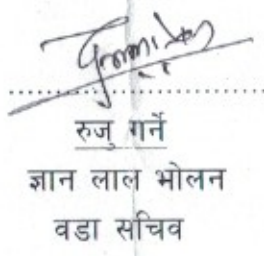 रुजु गर्ने
ज्ञान लाल भोलन
वडा सचिव